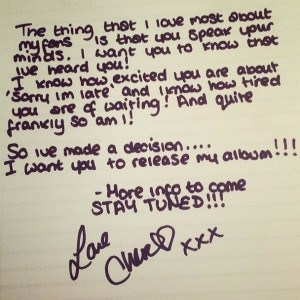 The thing that I love most about
my fans is that you speak your
minds. I want you to know that
ive heard you!
I know how excited you are about
'Sorry im late' and I know how tired
you are of waiting! And quite
frankly so am I!
So ive made a decision....
I want you to release my album!!!
- More info to come
STAY TUNED!!!
Love
Cheryl xxx